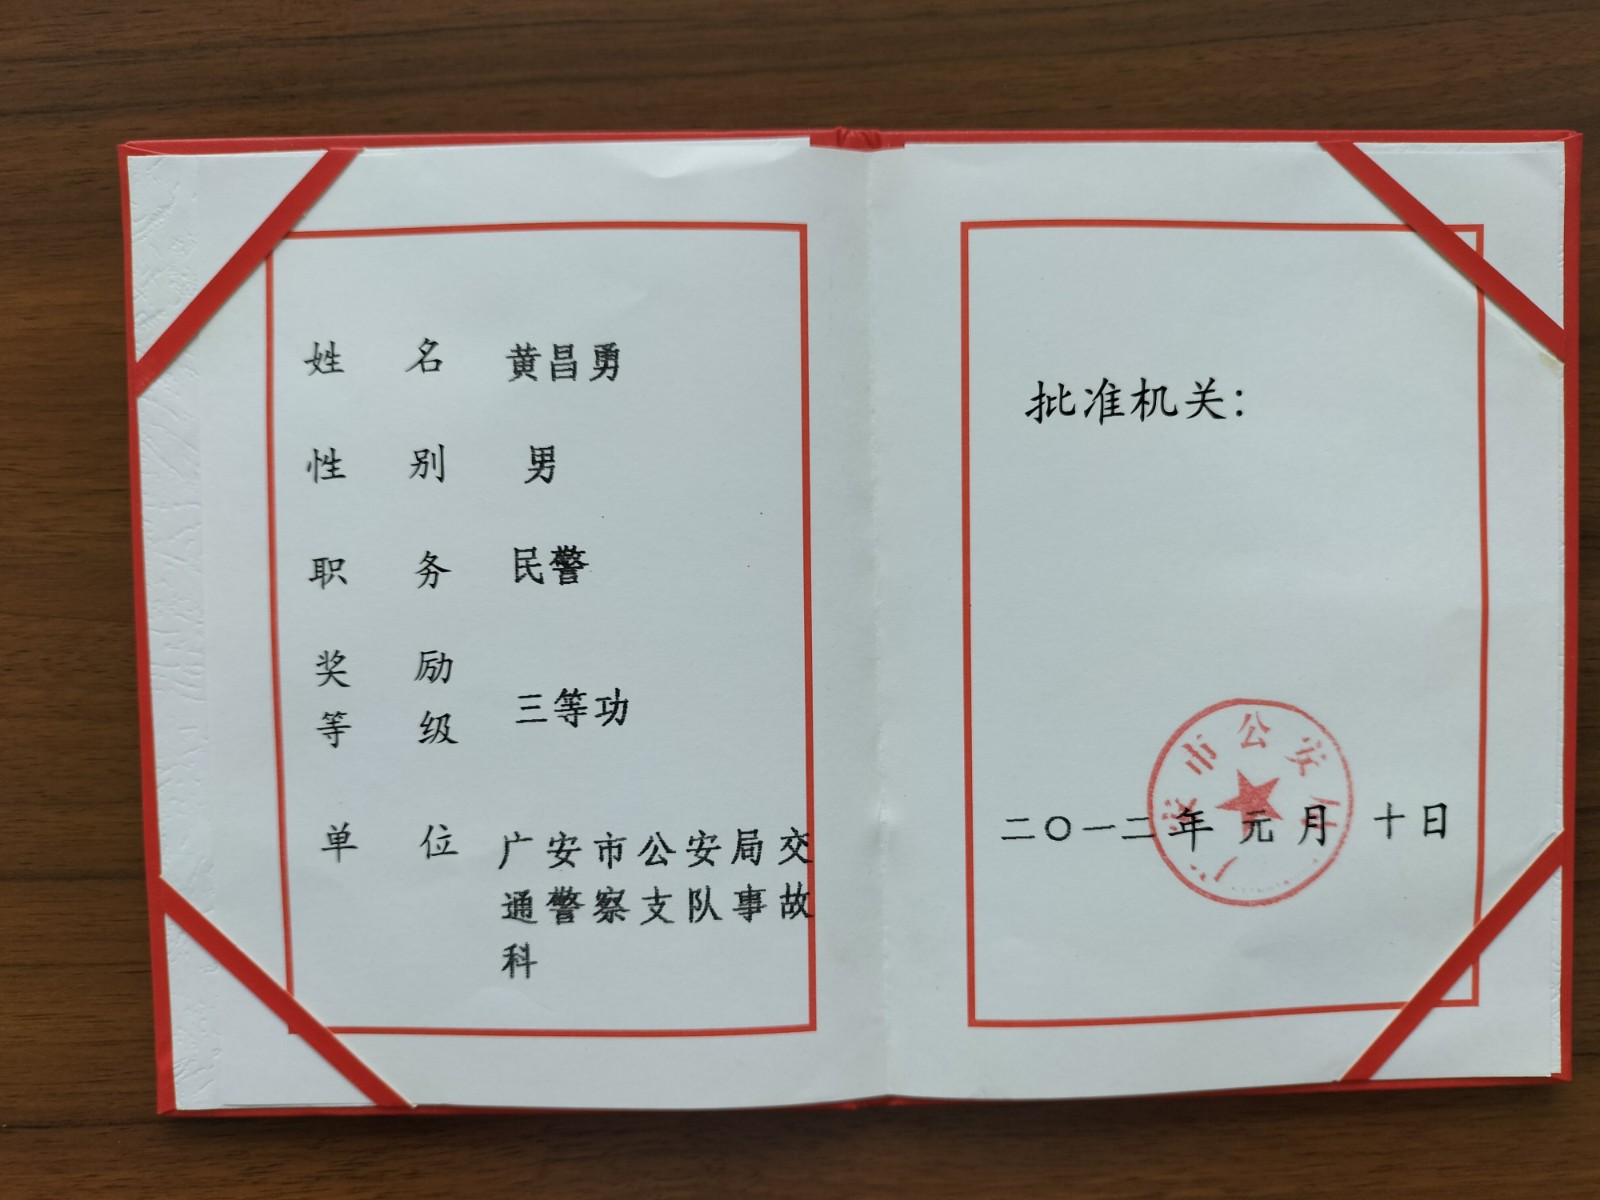 姓 名 黄昌勇
性 别 男
职 务 民警
奖 励
等 级
三等功
单 位 广安市公安局交
通警察支队事故
科
批准机关：
广安市公安局
二〇一二年 元月 十日